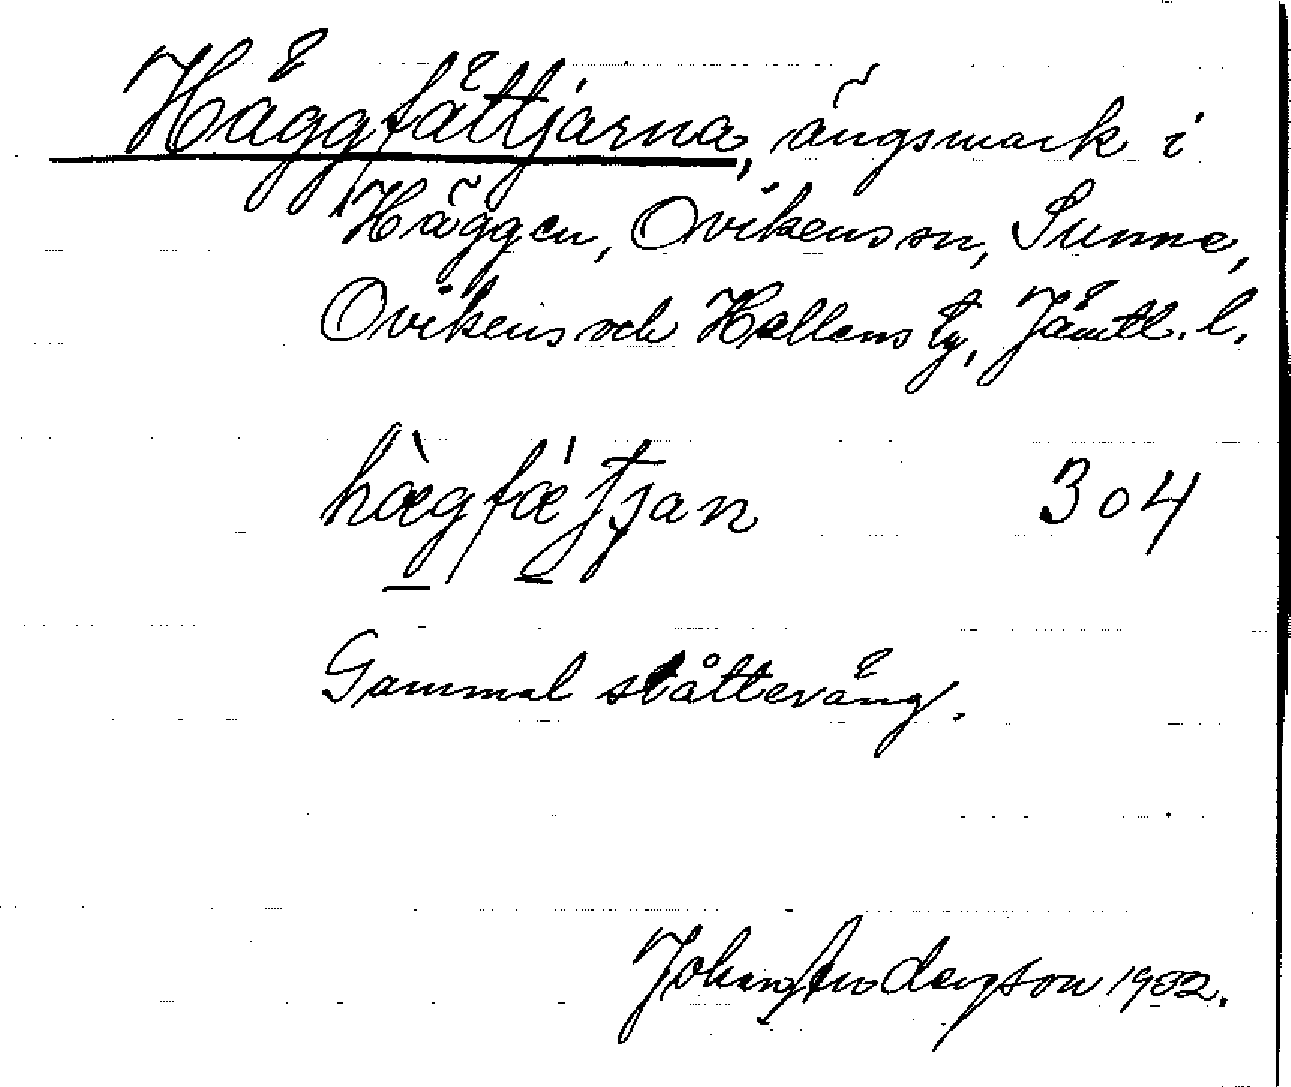 Häggfättjärna, ängsmark i
Häggen, Ovikens sn, Sunne,
Ovikens och Hallens tg, Jämtl. l.
hæ̀gfæ´ʃtjan 304
Gammal slåtteräng.
Johan Anderzson 1932.